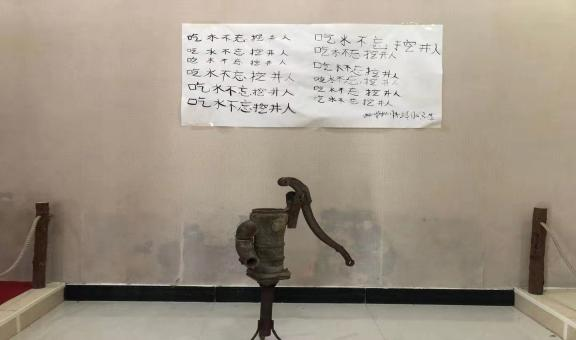 吃水不忘挖井人
吃水不忘挖井人
吃水不忘挖井人
吃水不忘挖井人
吃水不忘挖井人
吃水不忘挖井人
吃水不忘挖井人
吃水不忘挖井人
吃水不忘挖井人
吃水不忘挖井人
吃水不忘挖井人
吃水不忘挖井人